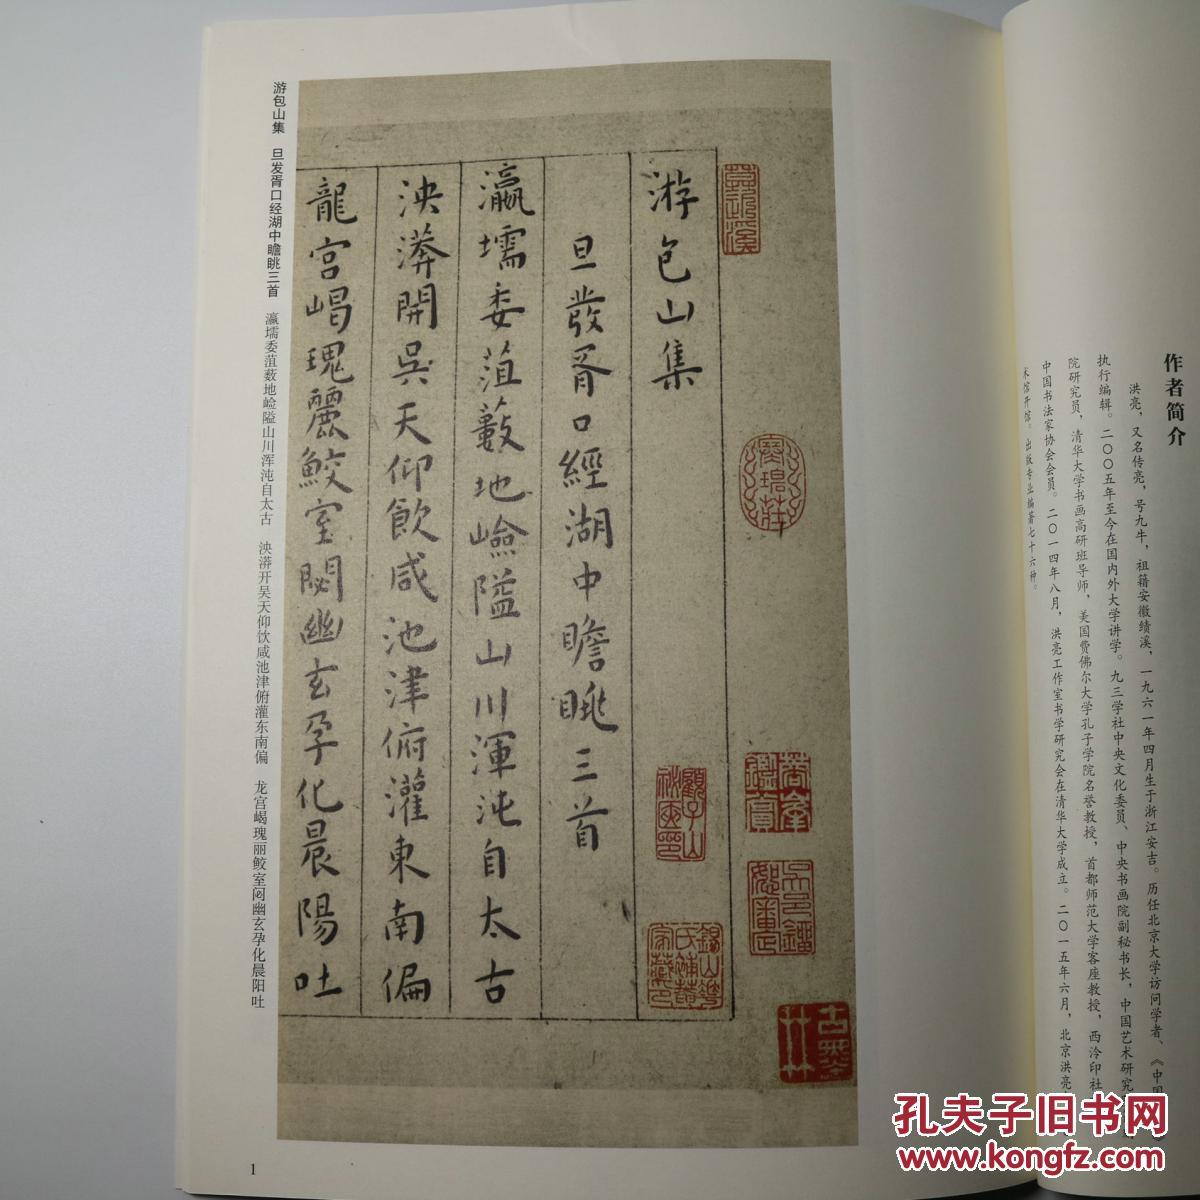 作者简介
洪亮，又名传亮，号九牛，祖籍安徽绩溪，一九六一年四月生于浙江安吉。历任北京大学访问学者、《中国
执行编辑。二〇〇五年至今在国内外大学讲学。九三学社中央文化委员、中央书画院副秘书长，中国艺术研究
院研究员，清华大学书画高研班导师，美国费佛尔大学孔子学院名誉教授，首都师范大学客座教授，西泠印社
中国书法家协会会员。二〇一四年八月，洪亮工作室书学研究会在清华大学成立。二〇一五年六月，北京洪亮
术馆开馆。出版专业编著七十六种。
游包山集
旦發胥口經湖中瞻眺三首
瀛壖委菹藪地嶮隘山川渾沌自太古
泱漭開吳天仰飲咸池津俯灌東南偏
龍宮嵑瑰麗鮫室閟幽玄孕化晨陽吐
游包山集 旦发胥口经湖中瞻眺三首 瀛壖委菹薮地崄隘山川浑沌自太古 泱漭开吴天仰饮咸池津俯灌东南偏 龙宫嵑瑰丽鲛室闷幽玄孕化晨阳吐
1
孔夫子旧书网
www.kongfz.com